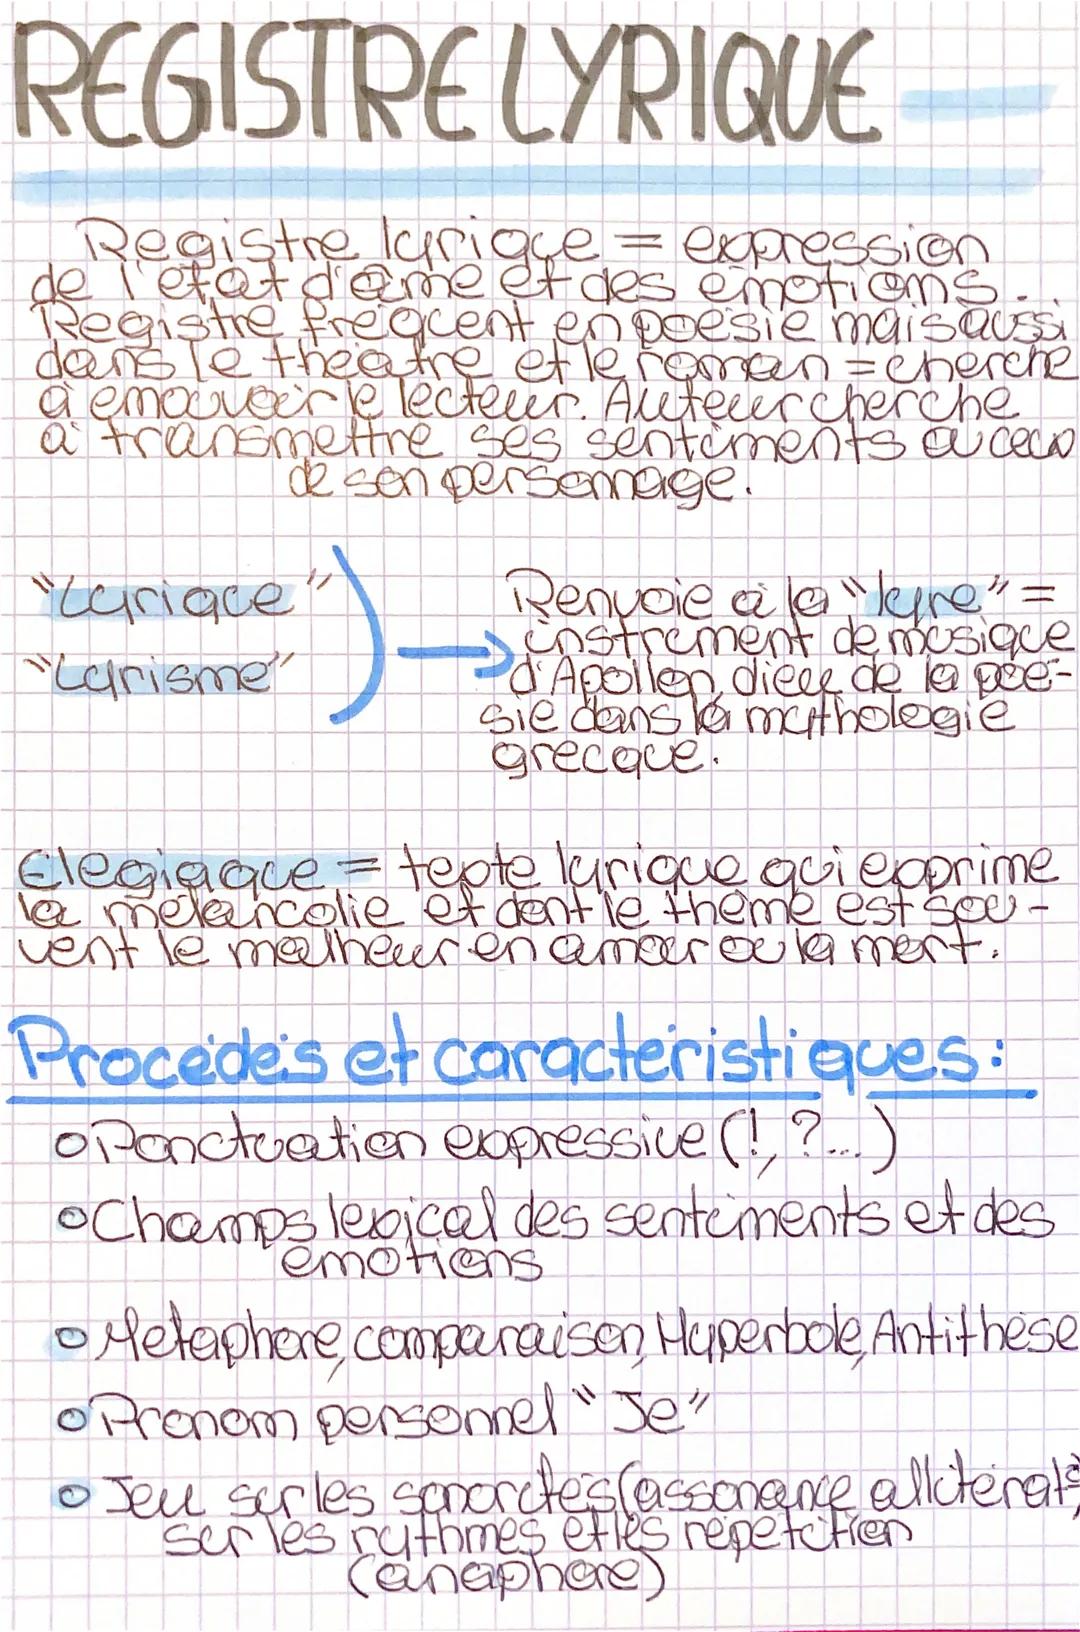 REGISTRE LYRIQUE
Registre lyrique = expression
de l'état d'âme et des émotions.
Registre fréquent en poésie mais aussi
dans le théâtre et le roman = cherche
à émouvoir le lecteur. Auteur cherche
à transmettre ses sentiments ou ceux
de son personnage.
"Lyrique"
"Lyrisme"
Renvoie à la "lyre" =
instrument de musique
d'Apollon, dieu de la poé-
sie dans la mythologie
grecque.
Elégiaque = texte lyrique qui exprime
la mélancolie et dont le thème est sou-
vent le malheur en amour ou la mort.
Procédés et caractéristiques :
o Ponctuation expressive (!, ?...)
o Champs lexical des sentiments et des
émotions
o Métaphore, comparaison, Hyperbole, Antithèse
o Pronom personnel "Je"
o Jeu sur les sonorités (assonance, allitérat°),
sur les rythmes et les répétition
(anaphore)